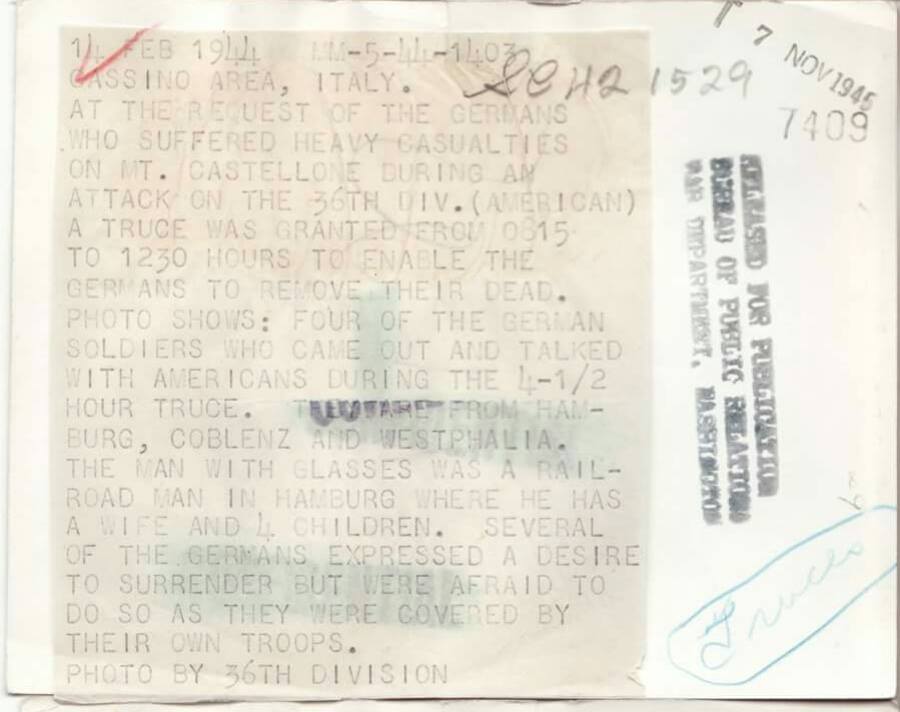 14 FEB 1944 MM-5-44-1403
CASSINO AREA, ITALY.
AT THE REQUEST OF THE GERMANS
WHO SUFFERED HEAVY CASUALTIES
ON MT. CASTELLONE DURING AN
ATTACK ON THE 36TH DIV.(AMERICAN)
A TRUCE WAS GRANTED FROM 0815
TO 1230 HOURS TO ENABLE THE
GERMANS TO REMOVE THEIR DEAD.
PHOTO SHOWS: FOUR OF THE GERMAN
SOLDIERS WHO CAME OUT AND TALKED
WITH AMERICANS DURING THE 4-1/2
HOUR TRUCE. FROM HAM-
BURG, COBLENZ AND WESTPHALIA.
THE MAN WITH GLASSES WAS A RAIL-
ROAD MAN IN HAMBURG WHERE HE HAS
A WIFE AND 4 CHILDREN. SEVERAL
OF THE GERMANS EXPRESSED A DESIRE
TO SURRENDER BUT WERE AFRAID TO
DO SO AS THEY WERE COVERED BY
THEIR OWN TROOPS.
PHOTO BY 36TH DIVISION
SC 421529
7 NOV 1945
7409
RELEASED FOR PUBLICATION
BUREAU OF PUBLIC RELATIONS
WAR DEPARTMENT, WASHINGTON